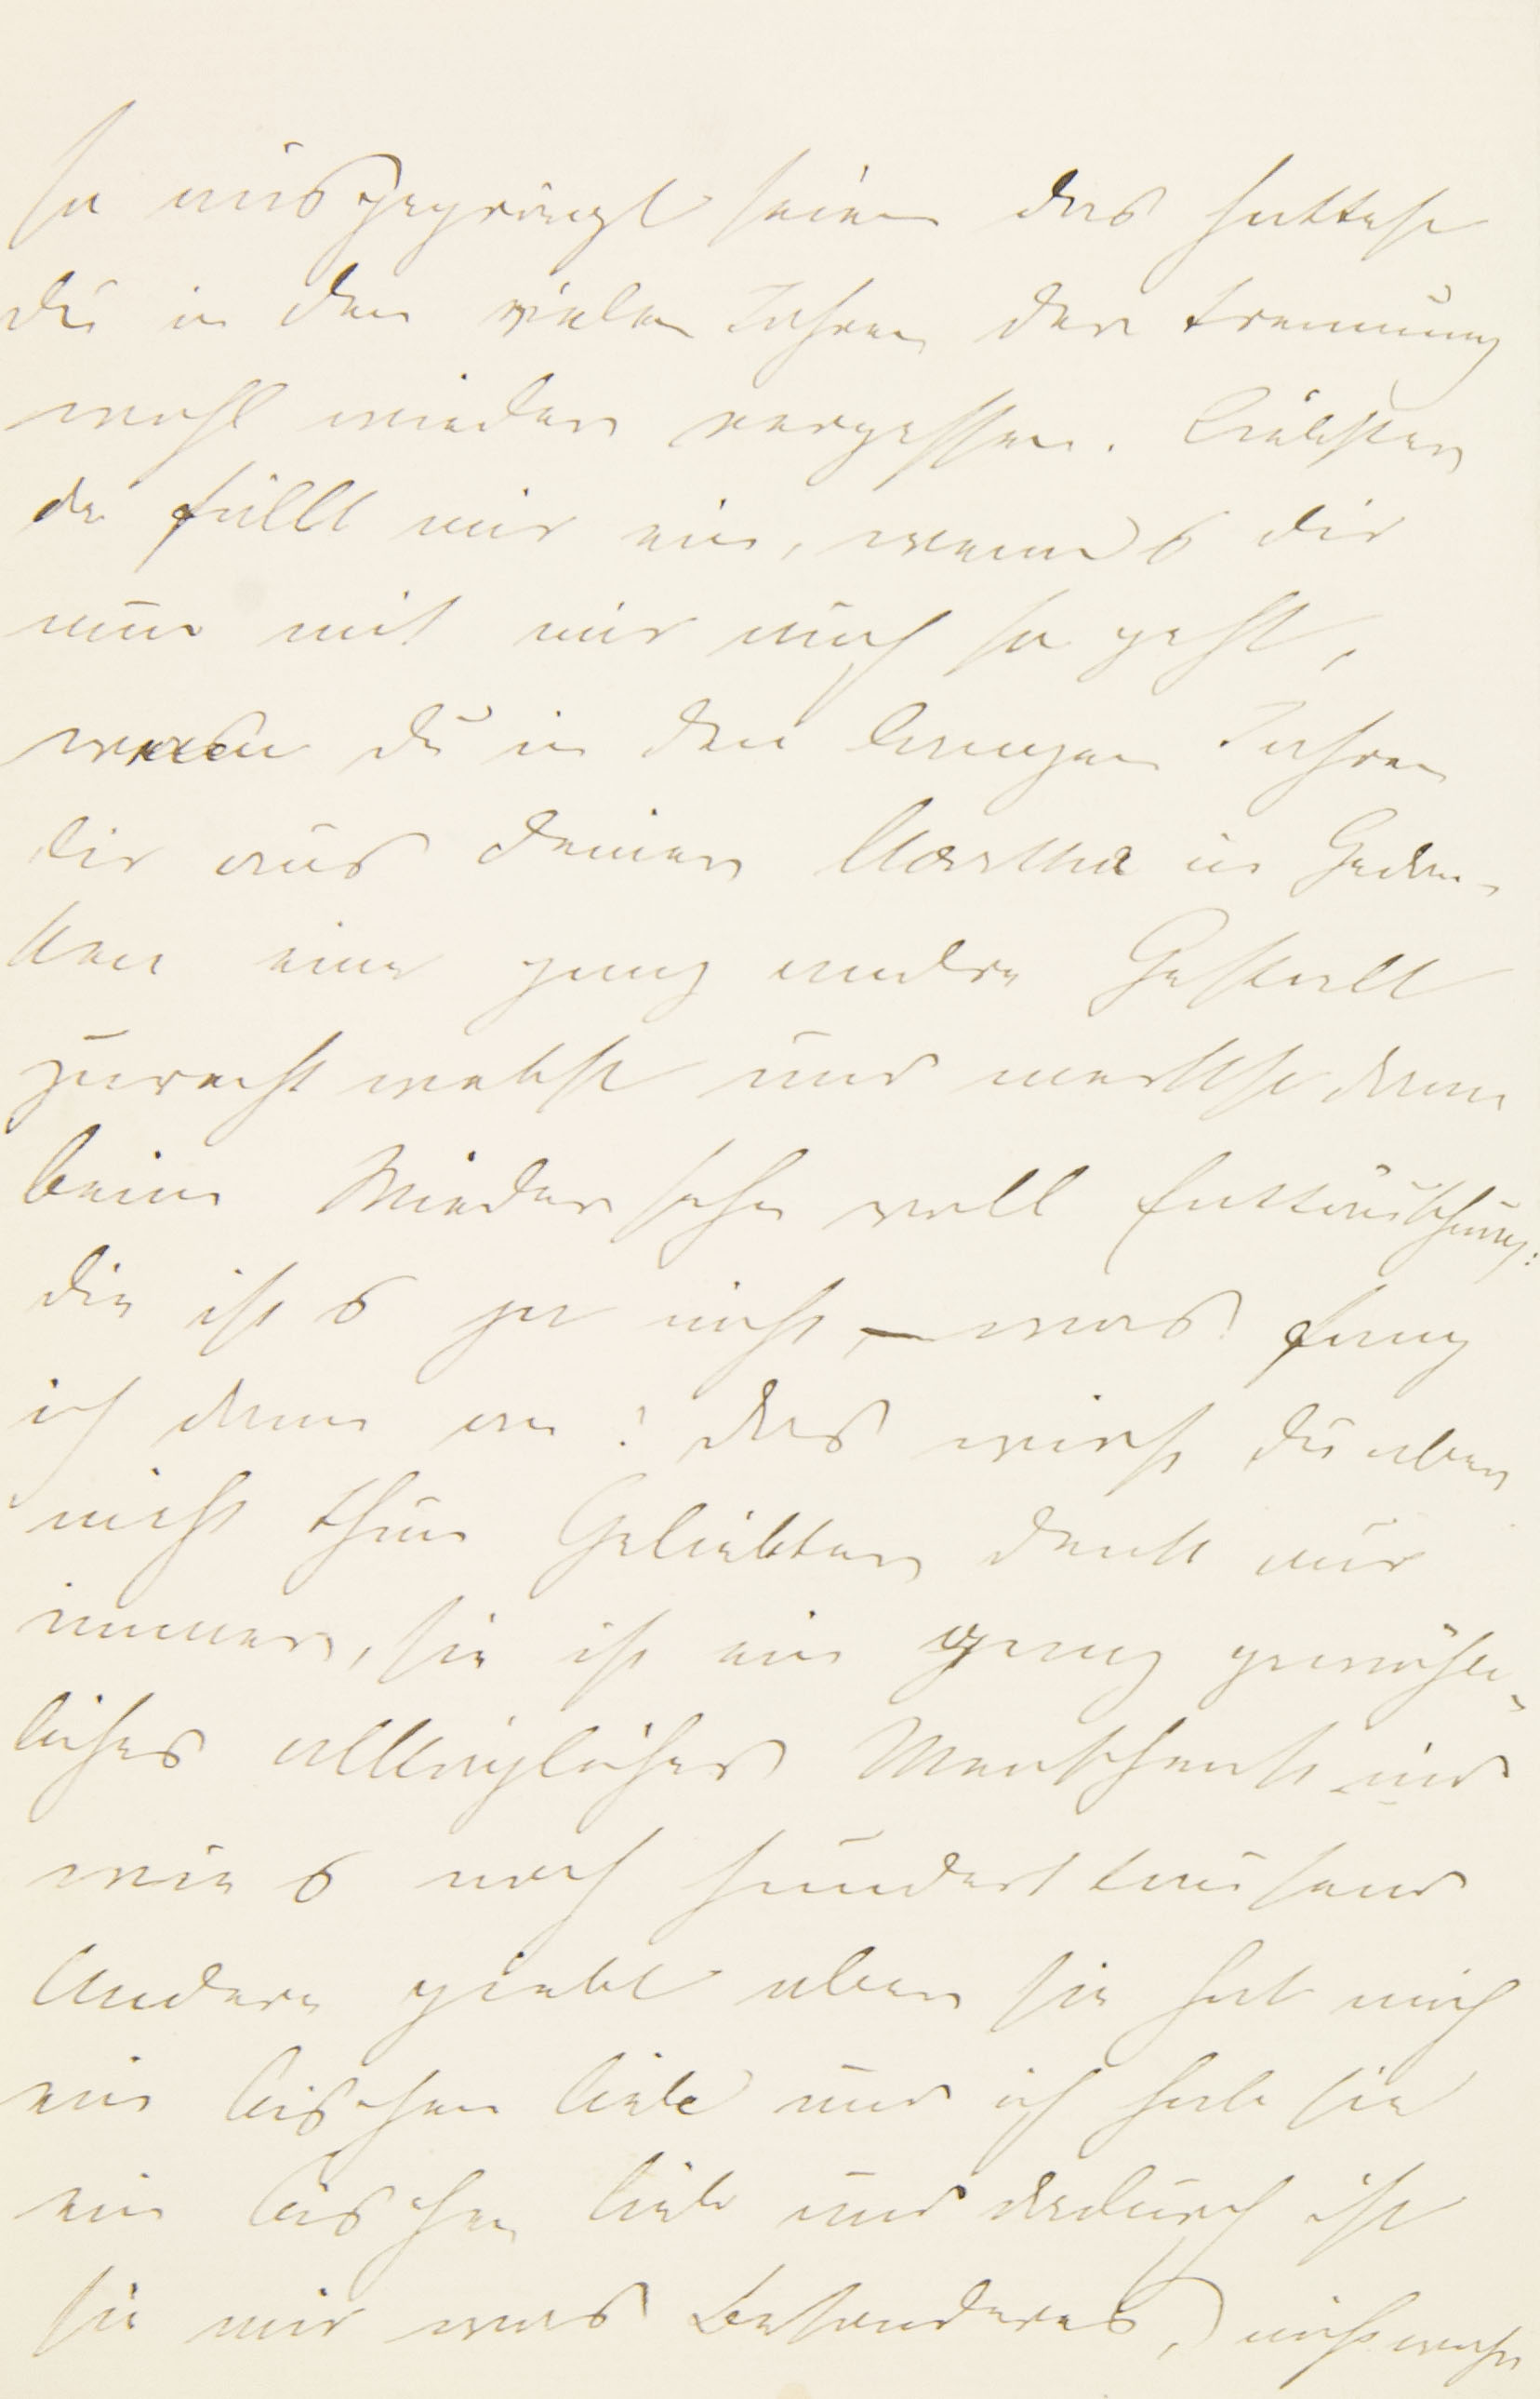 so ausgeprägt seien das hattest
du in den vielen Jahren der Trennung
wohl wieder vergessen. Liebster
da fällt mir ein, wenns dir
nun mit mir auch so geht,
wenn du in den langen Jahren
dir aus deiner Martha in Gedan-
ken eine ganz andre Gestalt
zurecht webst und merkst dann
beim Wiedersehn voll Enttäuschung:
die ists ja nicht, – was fang
ich denn an! Das wirst du aber
nicht thun Geliebter denk nur
immer, sie ist ein ganz gewöhn-
liches alltägliches Menschenkind
wie s noch hundert tausend
Andere giebt aber sie hat mich
ein bischen lieb und ich hab sie
ein bischen lieb und dadurch ist
sie mir was Besonderes, nichtwahr